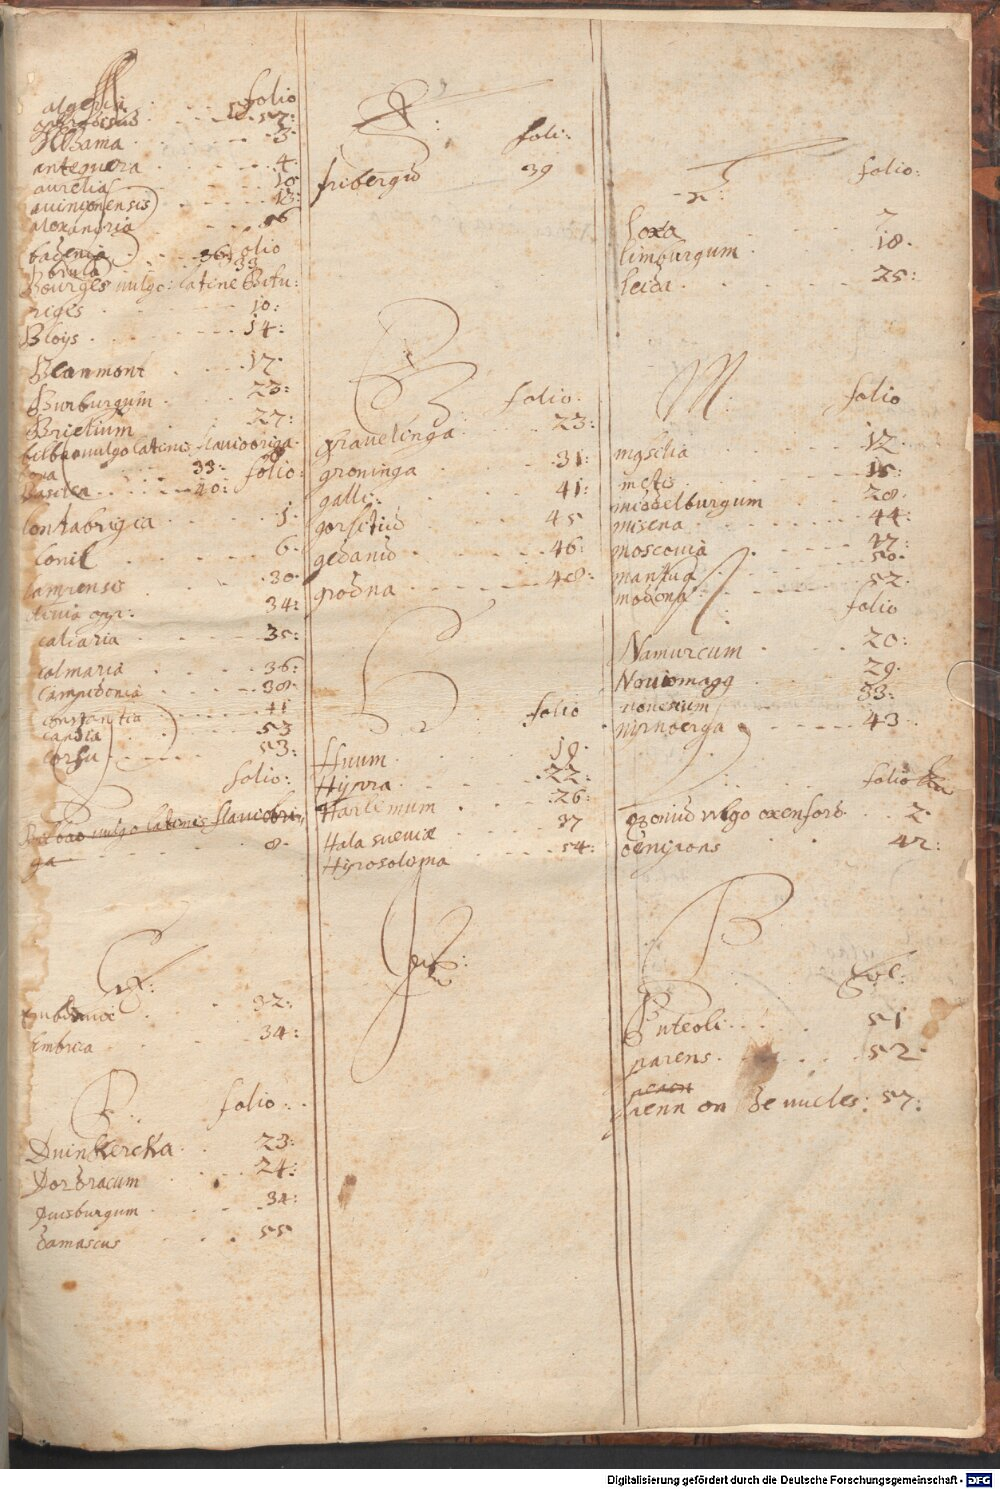 A
folio
algeria
57:
Alhama 3:
antequera 4:
aurelia 10
auinionensis 13:
alexandria 56
badenia 36 folio
brula 33
Bourges vulgo: latine Bitu:
riges 10:
Bloys 14:
Beaumont 17
Burburgum 23:
Brielium 27:
bilbao vulgo latinis flauiobriga 8
bona 33: folio:
Basilea 40:
Contabrigia 1
Conil 6
Camrensis 30
clivia opp: 34:
calcaria 35:
colmaria 36:
Campidonia 38
constantia 41
candia 53
corfu 53:
folio:
Bilbao vulgo latinis flauiobri
ga 8
E:
Embdanae 32:
Embrica 34:
D folio:
Duinkercka 23:
Dordracum 24:
Duisburgum 34:
damascus 55
F:
foli:
fribergum 39
G
folio:
grauelinga 23:
groninga 31:
galli: 41:
gorlitium 45
gedanum 46:
grodna 48:
H
folio
Huum 19
Hypra 22:
Harlemum 26
Hala sueuiae 37
Hyrosolyma 54:
J
L:
folio:
Loxa 7
limburgum 18
leida 25:
M folio
massilia 12
metis 15:
middelburgum 28
misena 44:
moscouia 47:
mantua 50
modena 52
N folio
Namurcum 20:
Nouiomagg 29
nouesium 33:
nyrnberga 43
O folio
oxonium vulgo oxenford 2
oenipons 42:
P
fol:
Puteoli 51
parens 52
penn on de ucles: 57:
Digitalisierung gefördert durch die Deutsche Forschungsgemeinschaft - DFG